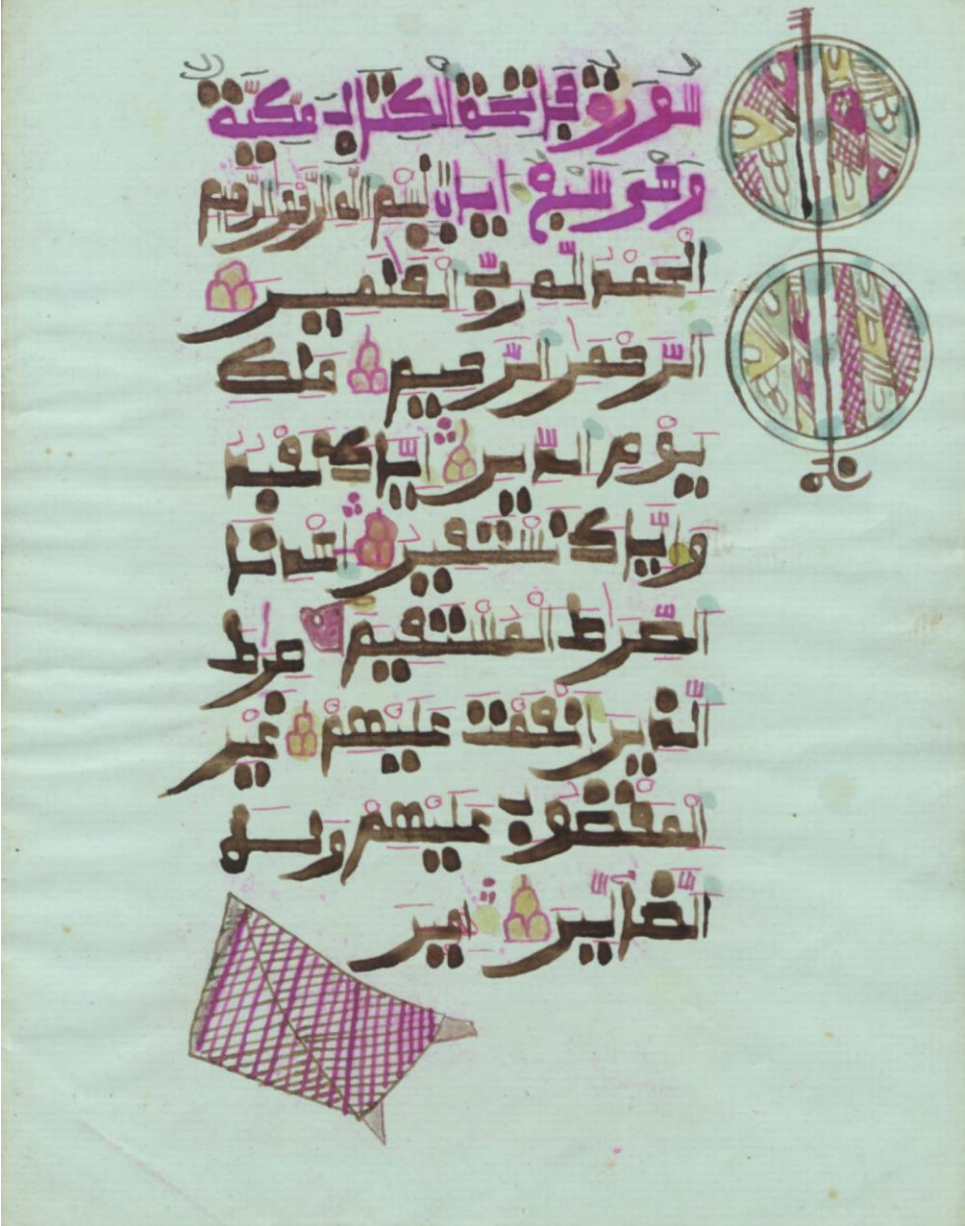 سورة فاتحة الكتب مكية
وهي سبع ايات بسم الله الرحمن الرحيم
الحمد لله رب العلمين
الرحمن الرحيم ملك
يوم الدين اياك نعبد
واياك نستعين اهدنا
الصرط المستقيم صرط
الذين انعمت عليهم غير
المغضوب عليهم ولا
الضالين امين